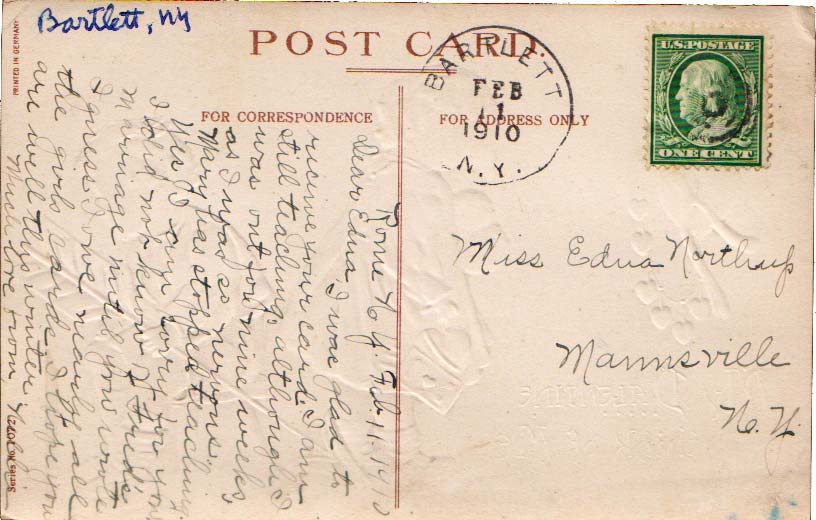 Bartlett, NY
PRINTED IN GERMANY
POST CARD.
FOR CORRESPONDENCE
FOR ADDRESS ONLY
BARTLETT
FEB
11
1910
N.Y.
U.S. POSTAGE
ONE CENT
Rome N.Y. Feb. 11, 1910
Dear Edna, I was glad to
recieve your card. I am
still teaching although I
was out for nine weeks,
as I was so nervous.
Mary has stopped teaching.
Yes I am sorry for you
I did not know of
Marriage until you wrote
I guess I owe nearly all
the girls cards. I hope you
are well this winter.
Much love from
Series No.
Miss Edna Northrup
Mannsville
N.Y.